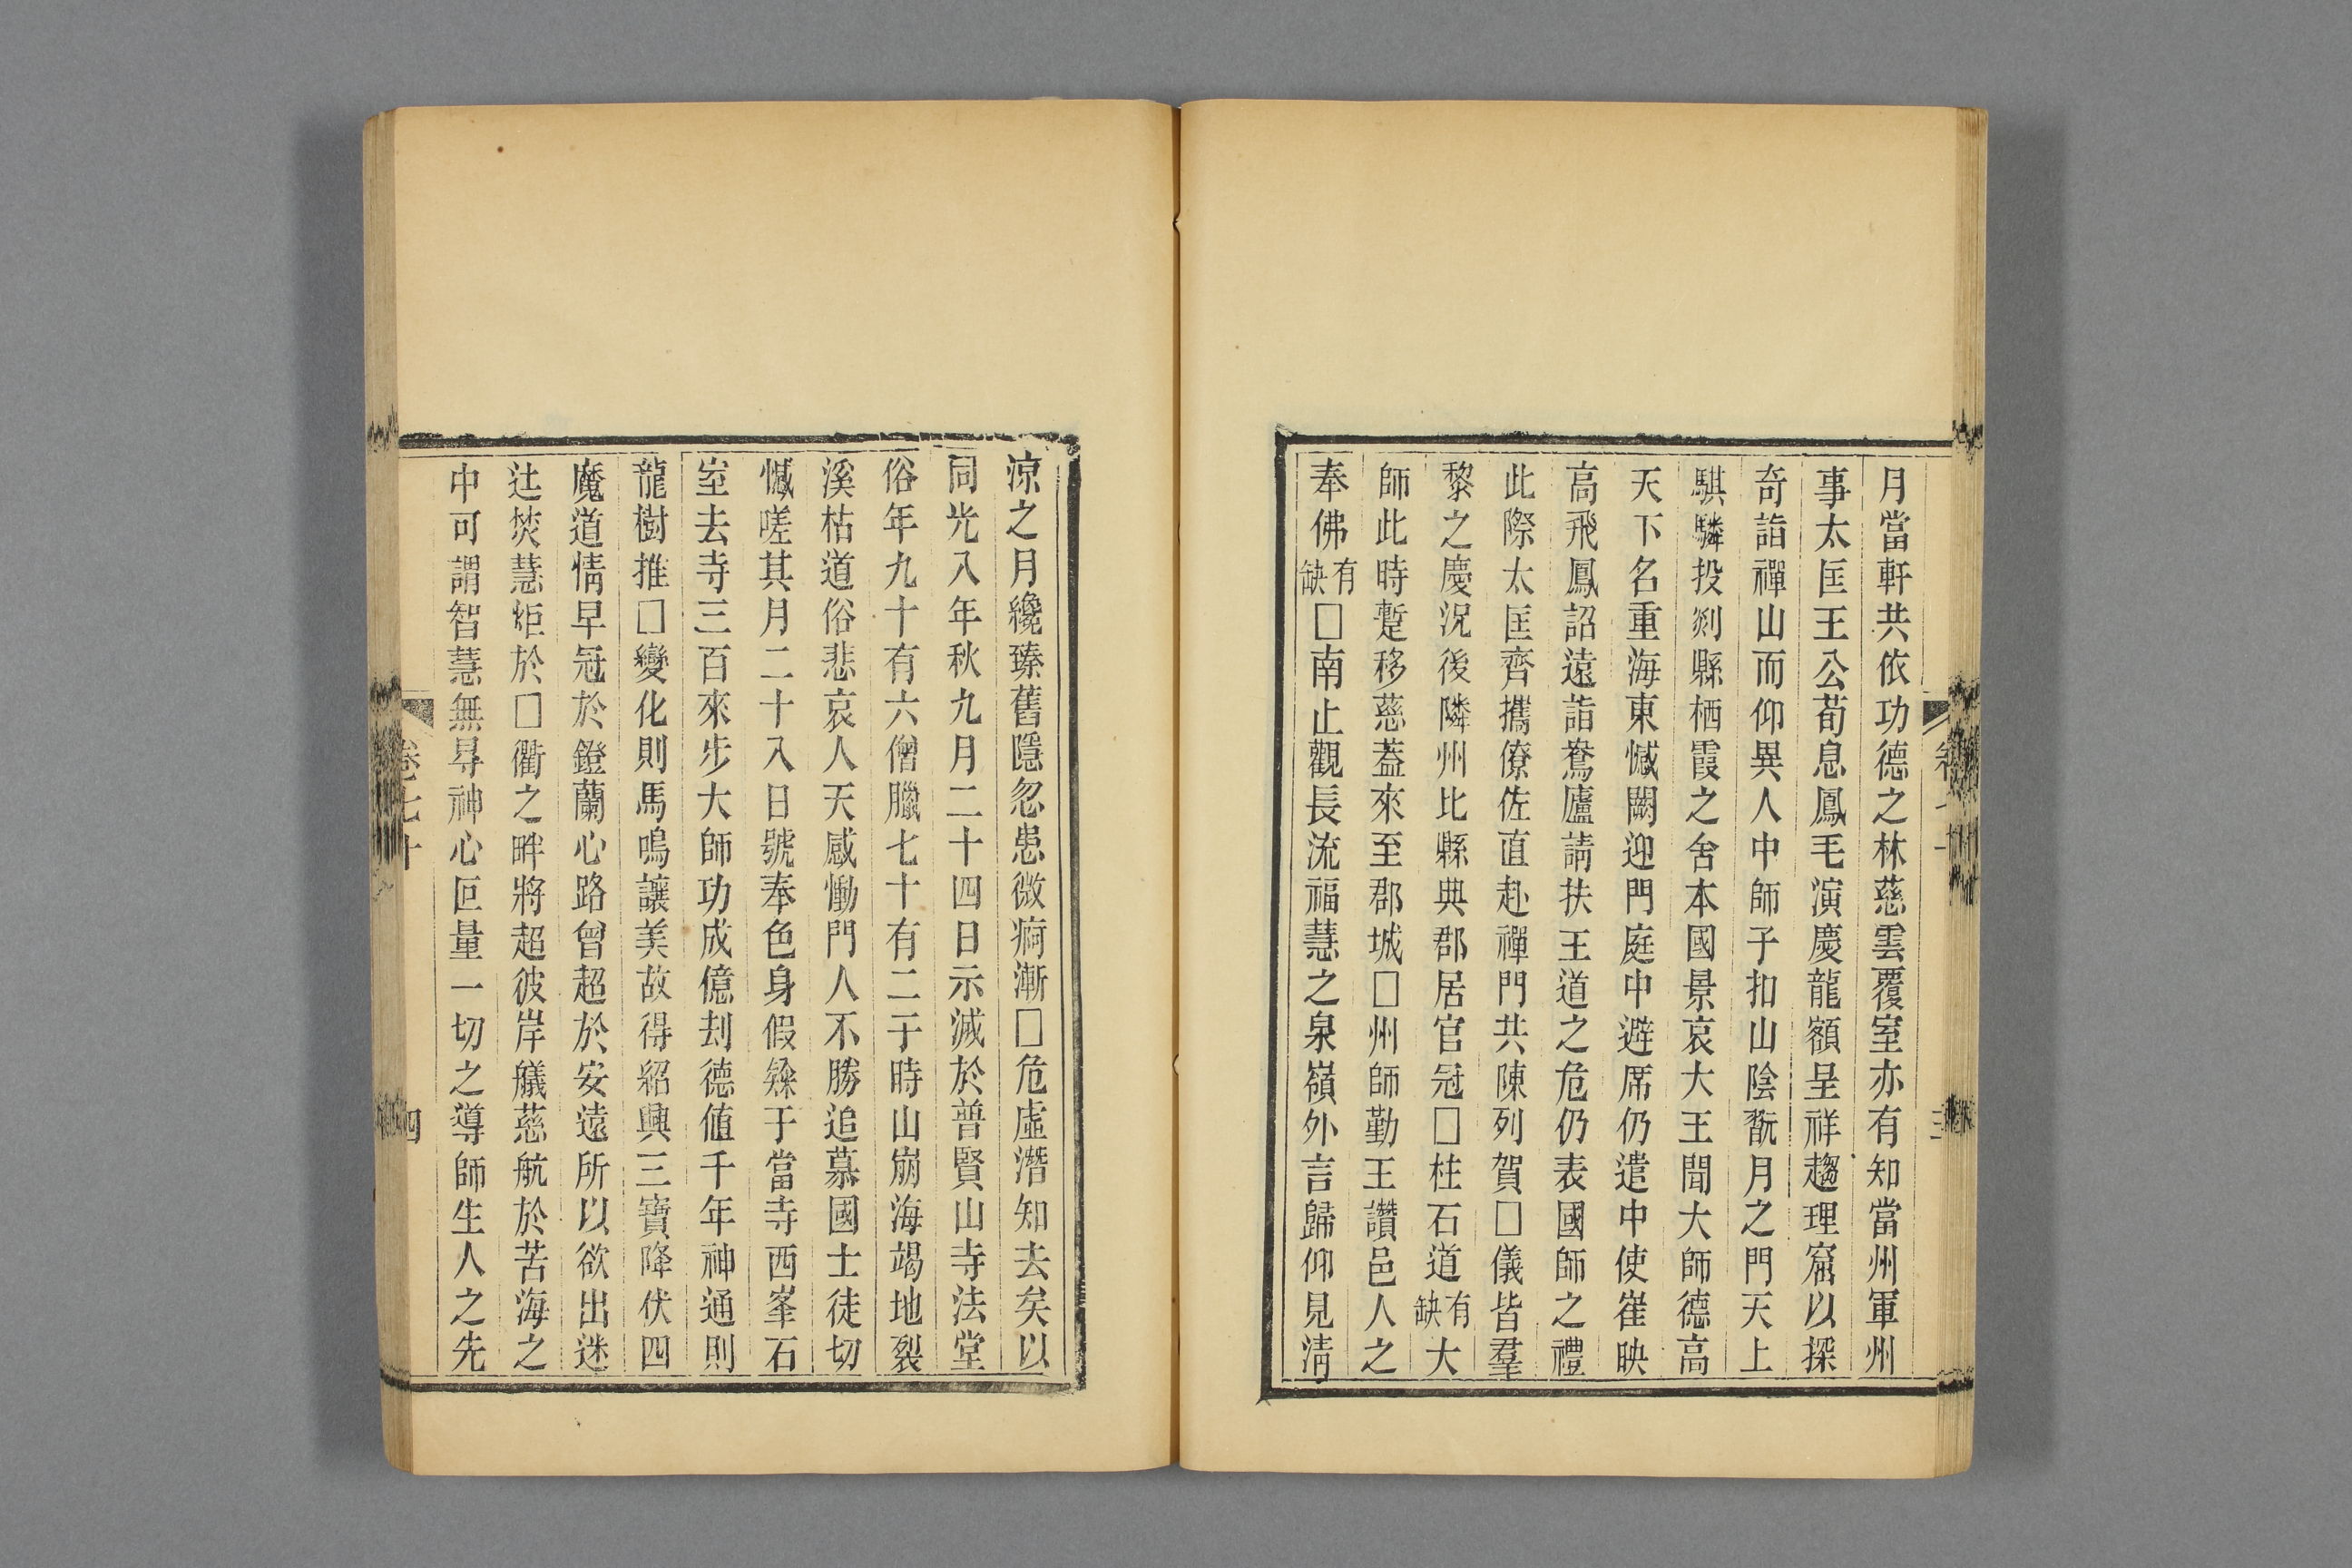 月當軒共依功德之林慈雲覆室亦有知當州軍州
事太匡王公荀息鳳毛演慶龍額呈祥趨理窟以探
奇詣禪山而仰異人中師子扣山陰翫月之門天上
騏驎投剡縣栖霞之舍本國景哀大王聞大師德高
天下名重海東憾闕迎門庭中避席仍遣中使崔映
高飛鳳詔遠詣鴦廬請扶王道之危仍表國師之禮
此際太匡齊攜僚佐直赴禪門共陳列賀□儀皆羣
黎之慶況後隣州比縣典郡居官冠□柱石道有缺大
師此時蹔移慈蓋來至郡城□州師勤王讚邑人之
奉佛有缺□南止觀長流福慧之泉嶺外言歸仰見淸
涼之月纔臻舊隱忽患微痾漸□危虛潛知去矣以
同光入年秋九月二十四日示滅於普賢山寺法堂
俗年九十有六僧臘七十有二于時山崩海竭地裂
溪枯道俗悲哀人天感慟門人不勝追慕國士徒切
憾嗟其月二十入日號奉色身假䂫于當寺西峯石
室去寺三百來步大師功成億刦德值千年神通則
龍樹推□變化則馬鳴讓美故得紹興三寶降伏四
魔道情早冠於鐙蘭心路曾超於安遠所以欲出迷
𨒪焚慧炬於□衢之畔將超彼岸艤慈航於苦海之
中可謂智慧無㝵神心叵量一切之導師生人之先
卷七十
四